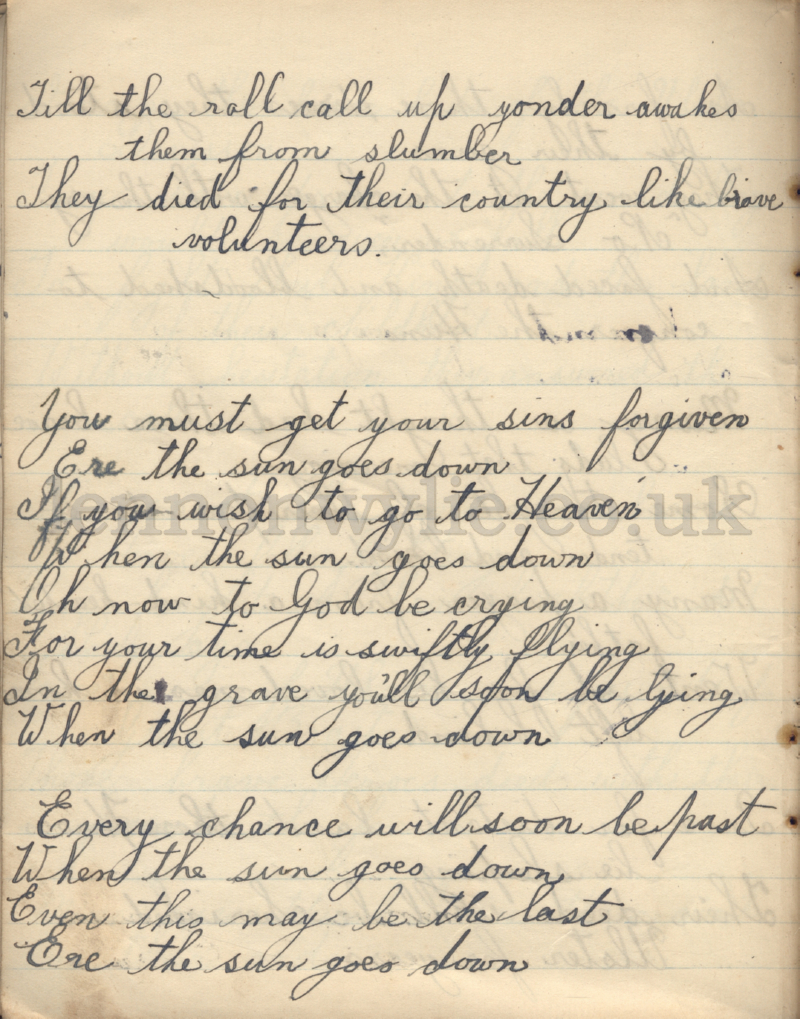 Till the roll call up yonder awakes
them from slumber
They died for their country like brave
volunteers.
You must get your sins forgiven
Ere the sun goes down
If you wish to go to Heaven
When the sun goes down
Oh now to God be crying
For your time is swiftly flying
In the grave you'll soon be lying
When the sun goes down
Every chance will soon be past
When the sun goes down
Even this may be the last
Ere the sun goes down
lennonwylie.co.uk